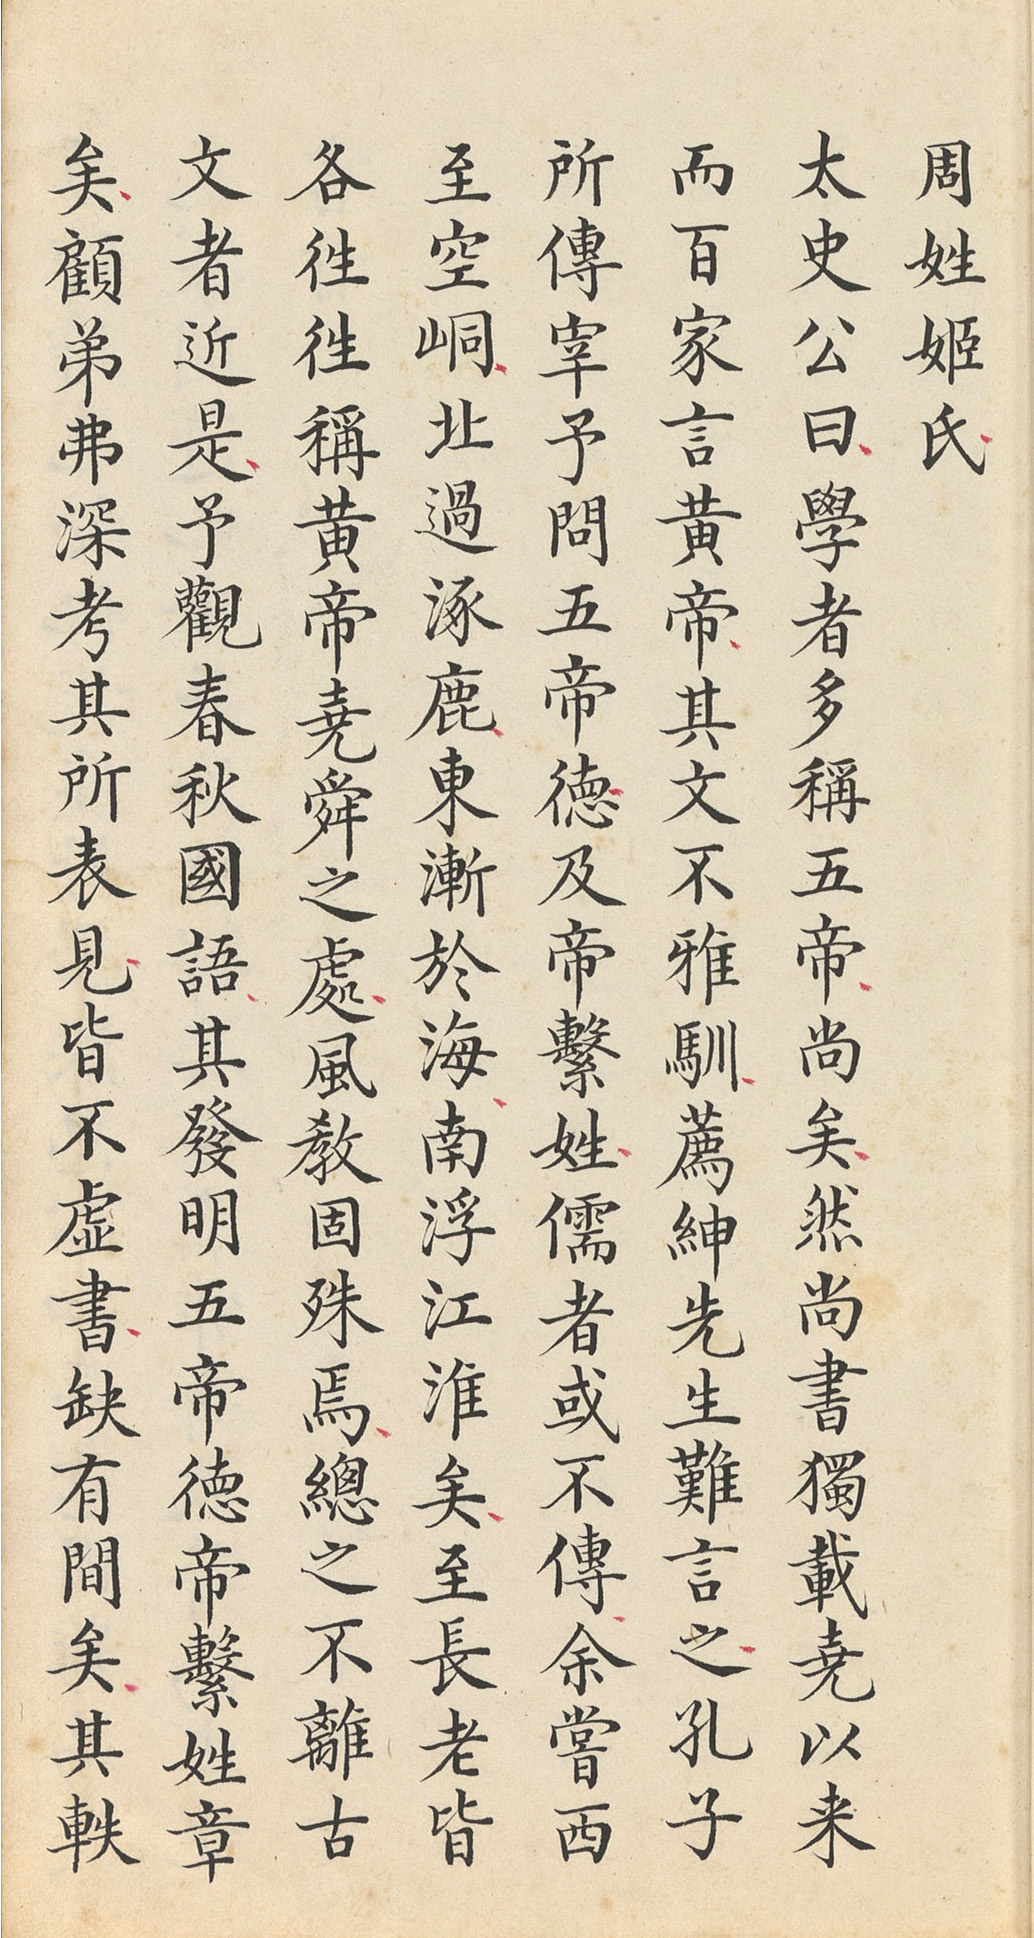 周姓姬氏
太史公曰學者多稱五帝尚矣然尚書獨載堯以来
而百家言黄帝其文不雅馴薦紳先生難言之孔子
所傳宰予問五帝德及帝繫姓儒者或不傳余嘗西
至空峒北過涿鹿東漸於海南浮江淮矣至長老皆
各徃徃稱黄帝堯舜之處風教固殊焉總之不離古
文者近是予觀春秋國語其發明五帝德帝繫姓章
矣顧弟弗深考其所表見皆不虚書缺有間矣其軼